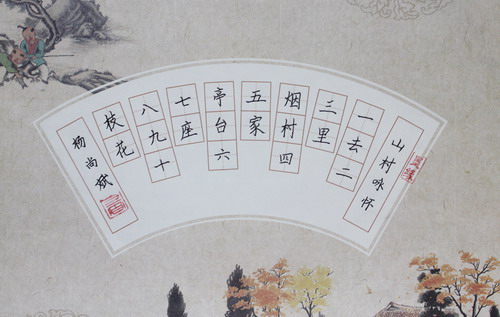 山村咏怀
一去二
三里
烟村四
五家
亭台六
七座
八九十
枝花
杨尚斌